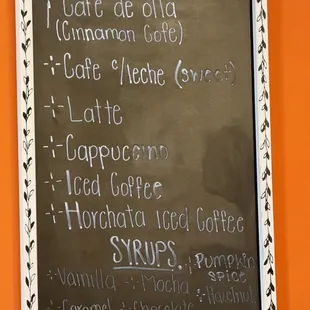 Cafe de olla
(Cinnamon Cofe)
Cafe c/leche (sweet)
Latte
Cappuccino
Iced Coffee
Horchata Iced Coffee
SYRUPS
Pumpkin
spice
Vainilla
Mocha
Hazelnut
Caramel
Chocolate